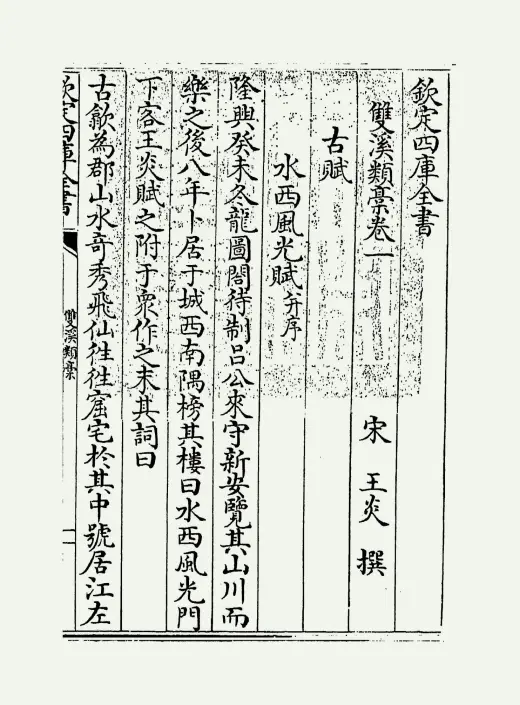 欽定四庫全書
雙溪類槀卷一
宋 王炎 撰
古賦
水西風光賦并序
隆興癸未冬龍圖閣待制呂公來守新安覽其山川而
樂之後八年卜居于城西南隅榜其樓曰水西風光門
下客王炎賦之附于衆作之末其詞曰
古歙為郡山水奇秀飛仙徃徃窟宅於其中號居江左
欽定四庫全書
雙溪類槀
一